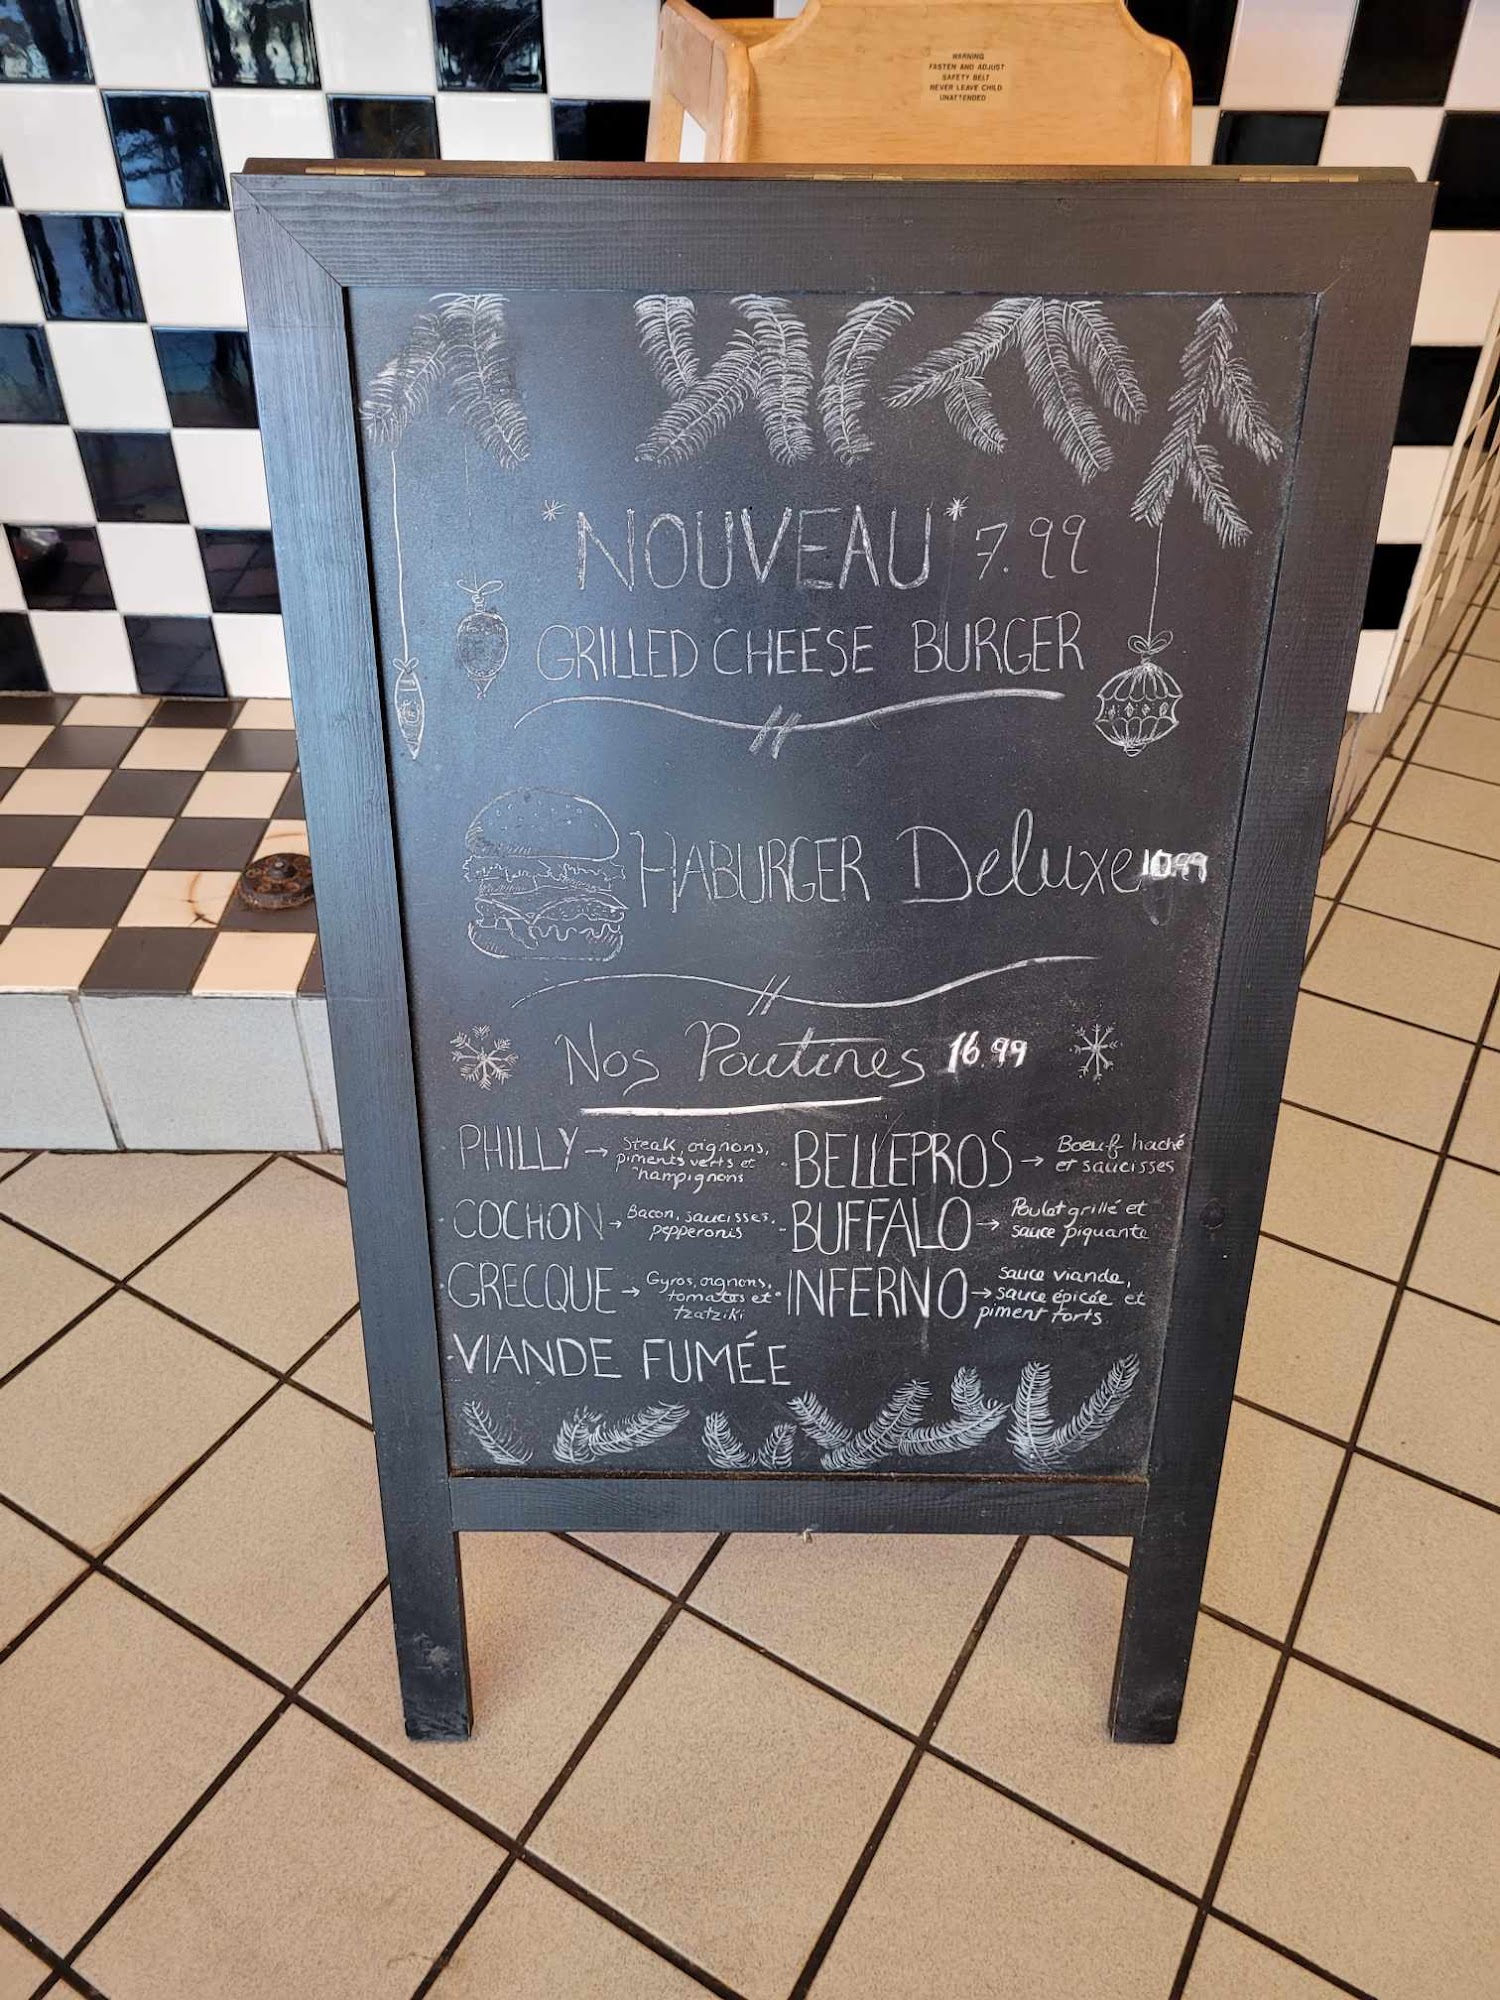 WARNING
FASTEN AND ADJUST
SAFETY BELT
NEVER LEAVE CHILD
UNATTENDED
*NOUVEAU* 7.99
GRILLED CHEESE BURGER
HABURGER Deluxe 10.99
Nos Poutines 16.99
PHILLY → Steak, oignons,
piments verts et
hampignons
COCHON → Bacon, saucisses,
pepperonis
GRECQUE → Gyros, oignons,
tomates et
tzatziki
· VIANDE FUMÉE
· BELLEPROS → Boeuf haché
et saucisses
· BUFFALO → Poulet grillé et
sauce piquante
· INFERNO → sauce viande,
sauce épicée et
piment forts